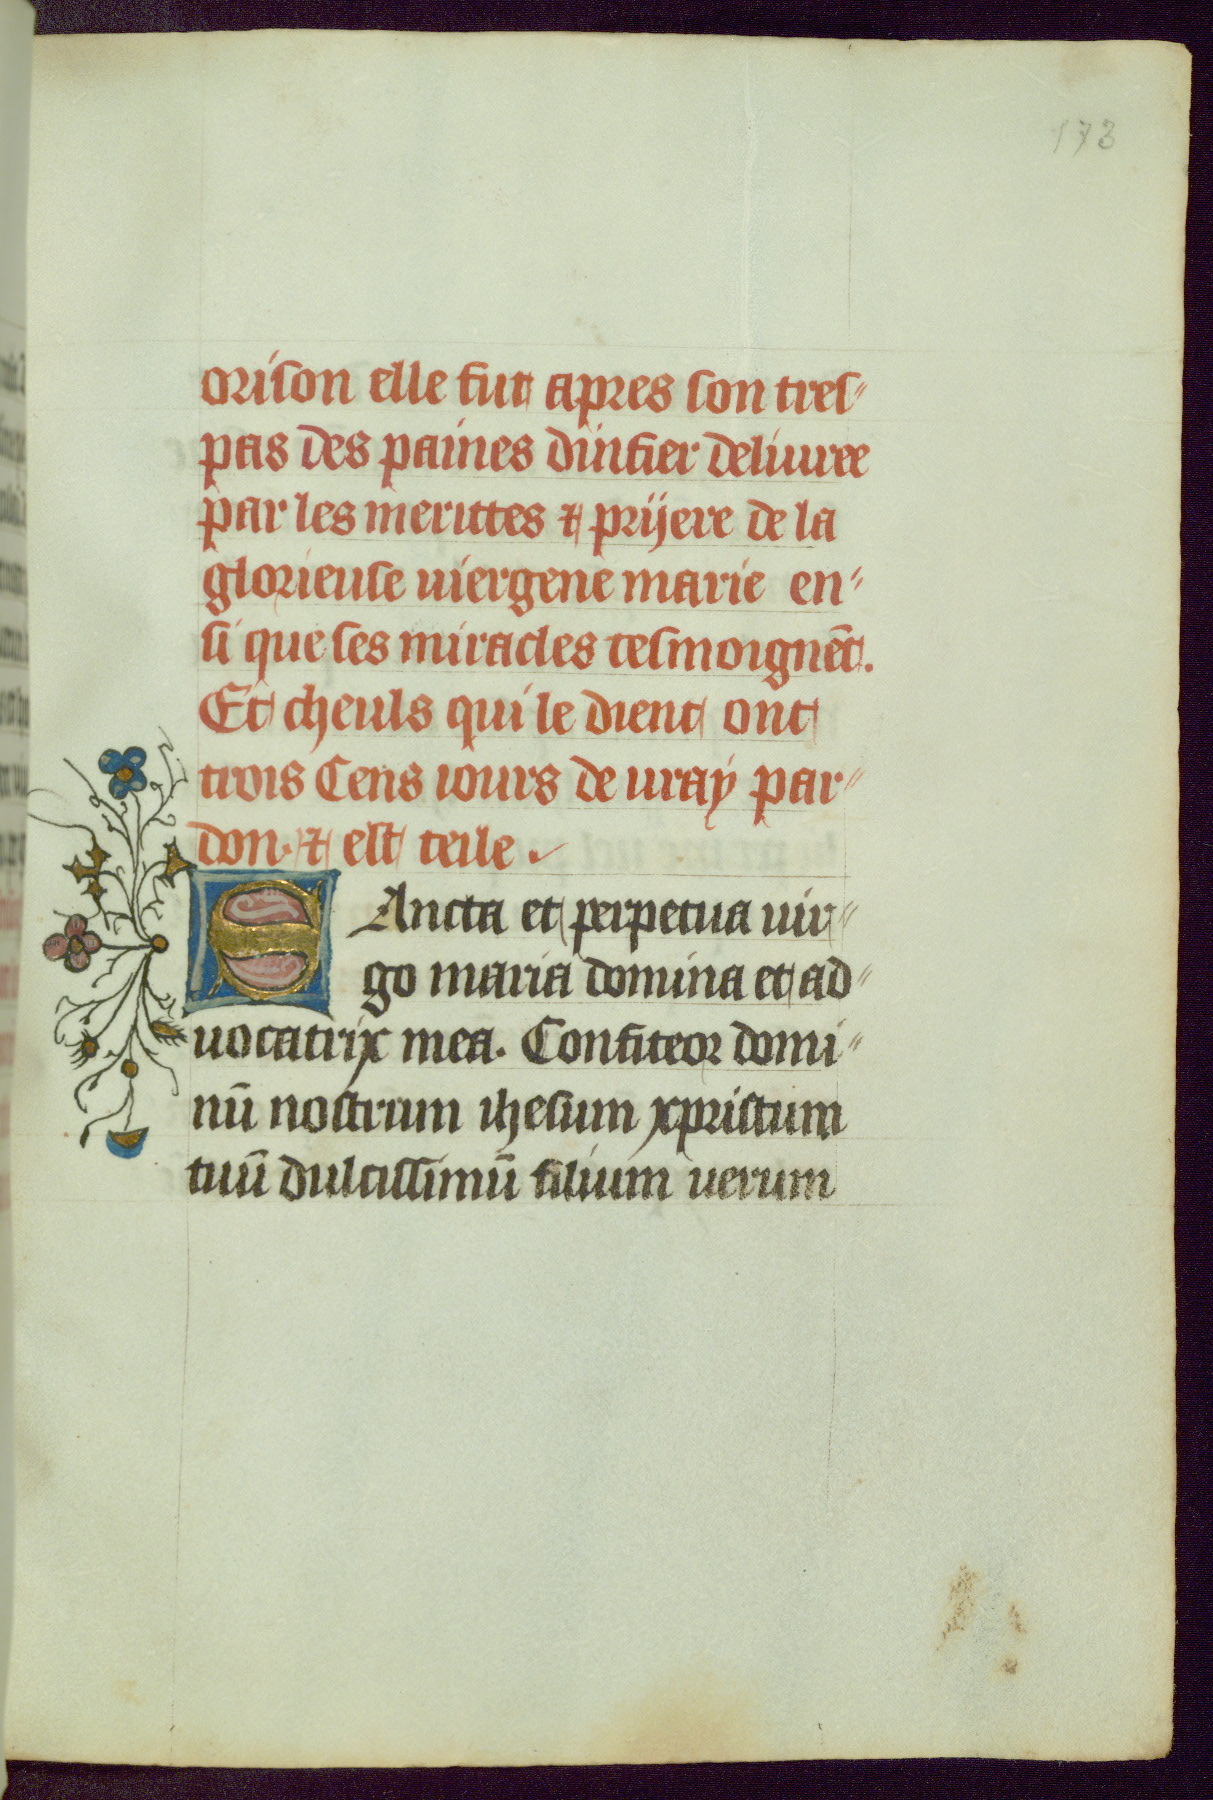 173
oriſon elle fut apres ſon treſ-
pas des paines dinfier deliuree
par les merittes ⁊ prijere de la
glorieuſe uiergene marie en-
ſi que ſes miracles teſmoignēt.
Et cheuls qui le dient ont
trois Cens iours de uraÿ par-
don. ⁊ eſt teile.
SAncta et perpetua uir-
go maria domina et ad-
uocatrix mea. Confiteor domi-
nū noſtrum iheſum xpriſtum
tuū dulciſſimū filium uerum